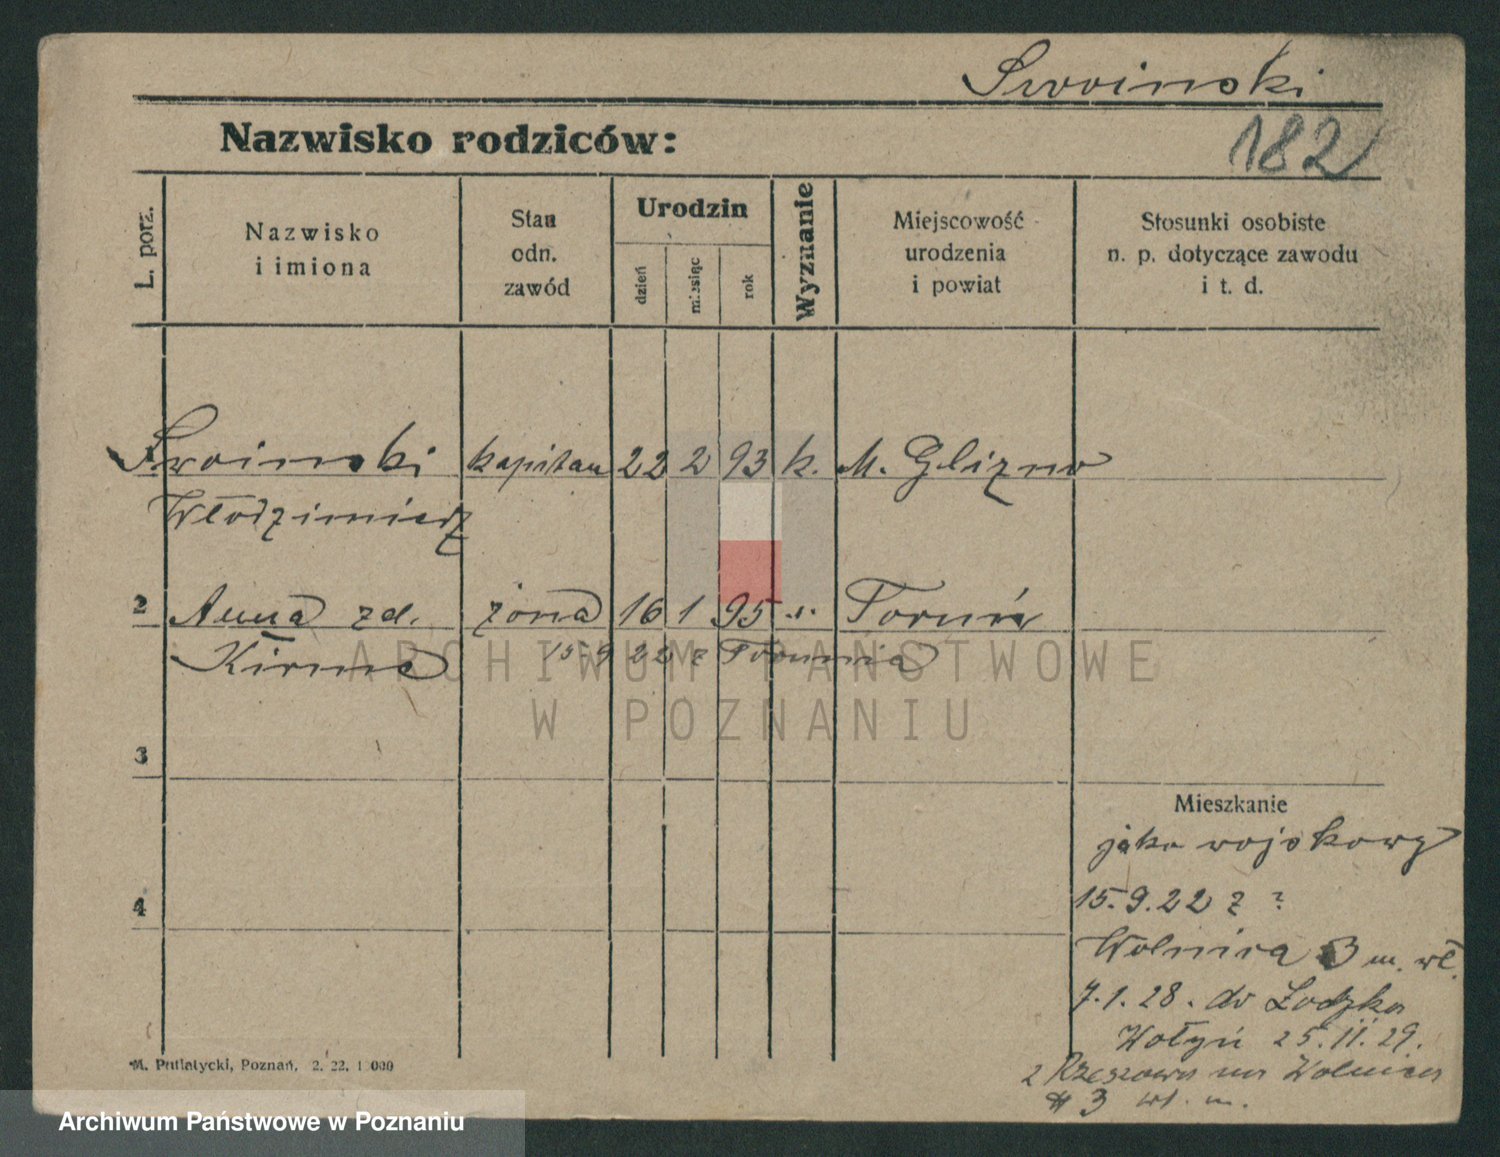 Swoinski
Nazwisko rodziców:
182
L. porz.
Nazwisko
i imiona
Stan
odn.
zawód
Urodzin
dzień
miesiąc
rok
Wyznanie
Miejscowość
urodzenia
i powiat
Stosunki osobiste
n. p. dotyczące zawodu
i t. d.
Swoinski kapitan 22 2 93 k. M. Glizno
Włodzimierz
2 Anna zd. żona 16 1 95 " Toruń
Kirme 15-9 22 z Torunia
ARCHIWUM PAŃSTWOWE
W POZNANIU
3
Mieszkanie
jako wojskowy
15.9.22 z ?
4
Wolnica 3 m. wł.
7.1.28. do Łodzka
Wołyń 25.II.29.
z Rzeszowa na Wolnica
# 3 wł. m.
M. Putiatycki, Poznań, 2. 22. 1 000
Archiwum Państwowe w Poznaniu